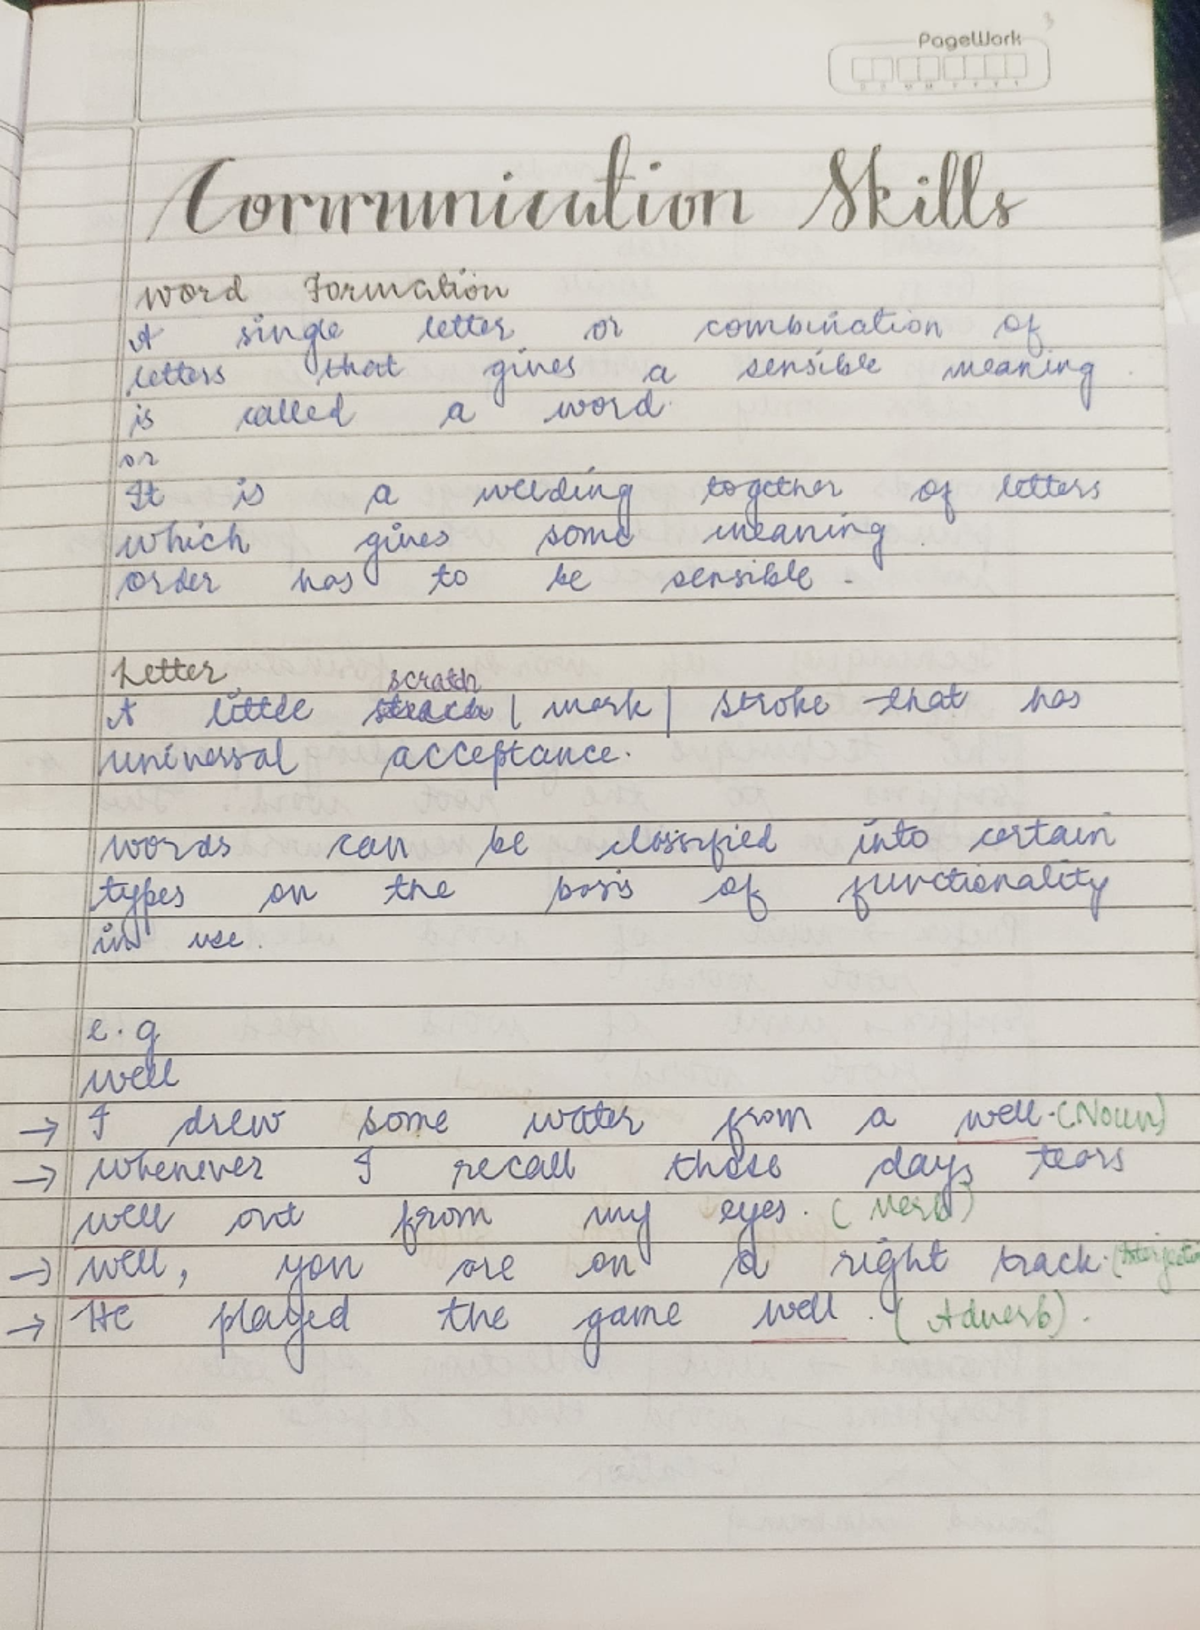 PageWork
D D M M Y Y Y Y
Communication Skills
Word Formation
A single letter or combination of
letters that gives a sensible meaning
is called a word.
or
It is a welding together of letters
which gives some meaning.
order has to be sensible.
Letter
scratch
A little | mark | stroke that has
universal acceptance.
words can be classified into certain
types on the basis of functionality
in use.
e.g
well
→ I drew some water from a well. (Noun)
→ whenever I recall those days tears
well out from my eyes. (Verb)
→ well, you are on a right track. (Interjection
→ He played the game well. (Adverb).